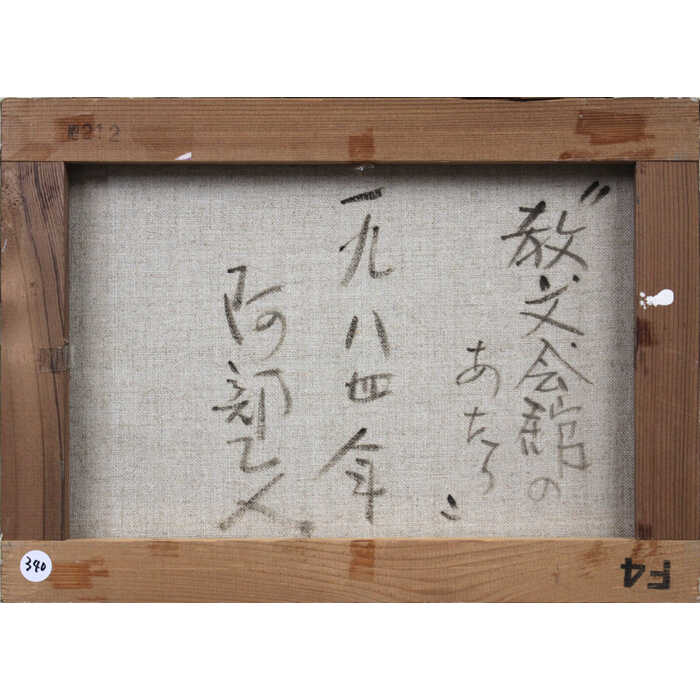 〝教文会館の
あたり〟
一九八四年
阿部乙人
212
340
F4